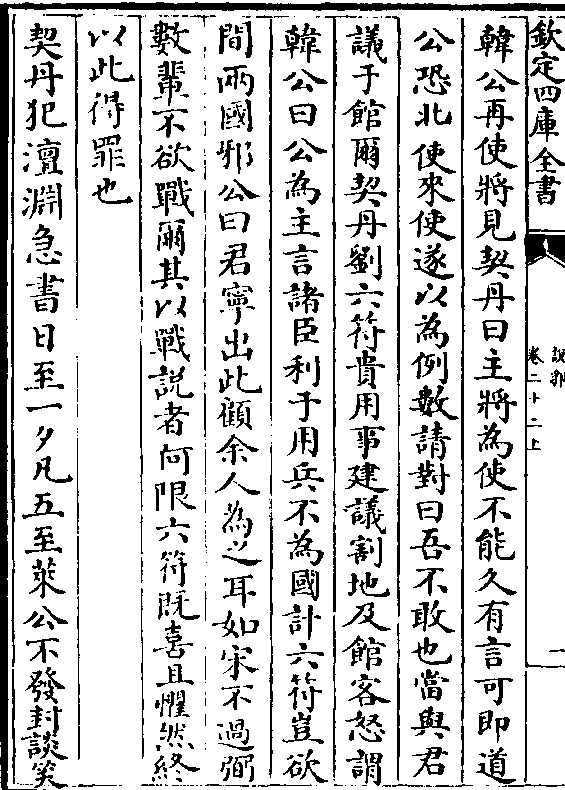 欽定四庫全書
說郛
卷二十二上
一
韓公再使將見契丹曰主將為使不能久有言可即道
公恐北使來使遂以為例數請對曰吾不敢也當與君
議于館爾契丹劉六符貴用事建議割地及館客怒謂
韓公曰公為主言諸臣利于用兵不為國計六符豈欲
間兩國邪公曰君寧出此顧余人為之耳如宋不過弼
數輩不欲戰爾其以戰説者何限六符既喜且懼然終
以此得罪也
契丹犯澶淵急書日至一夕凡五至萊公不發封談笑